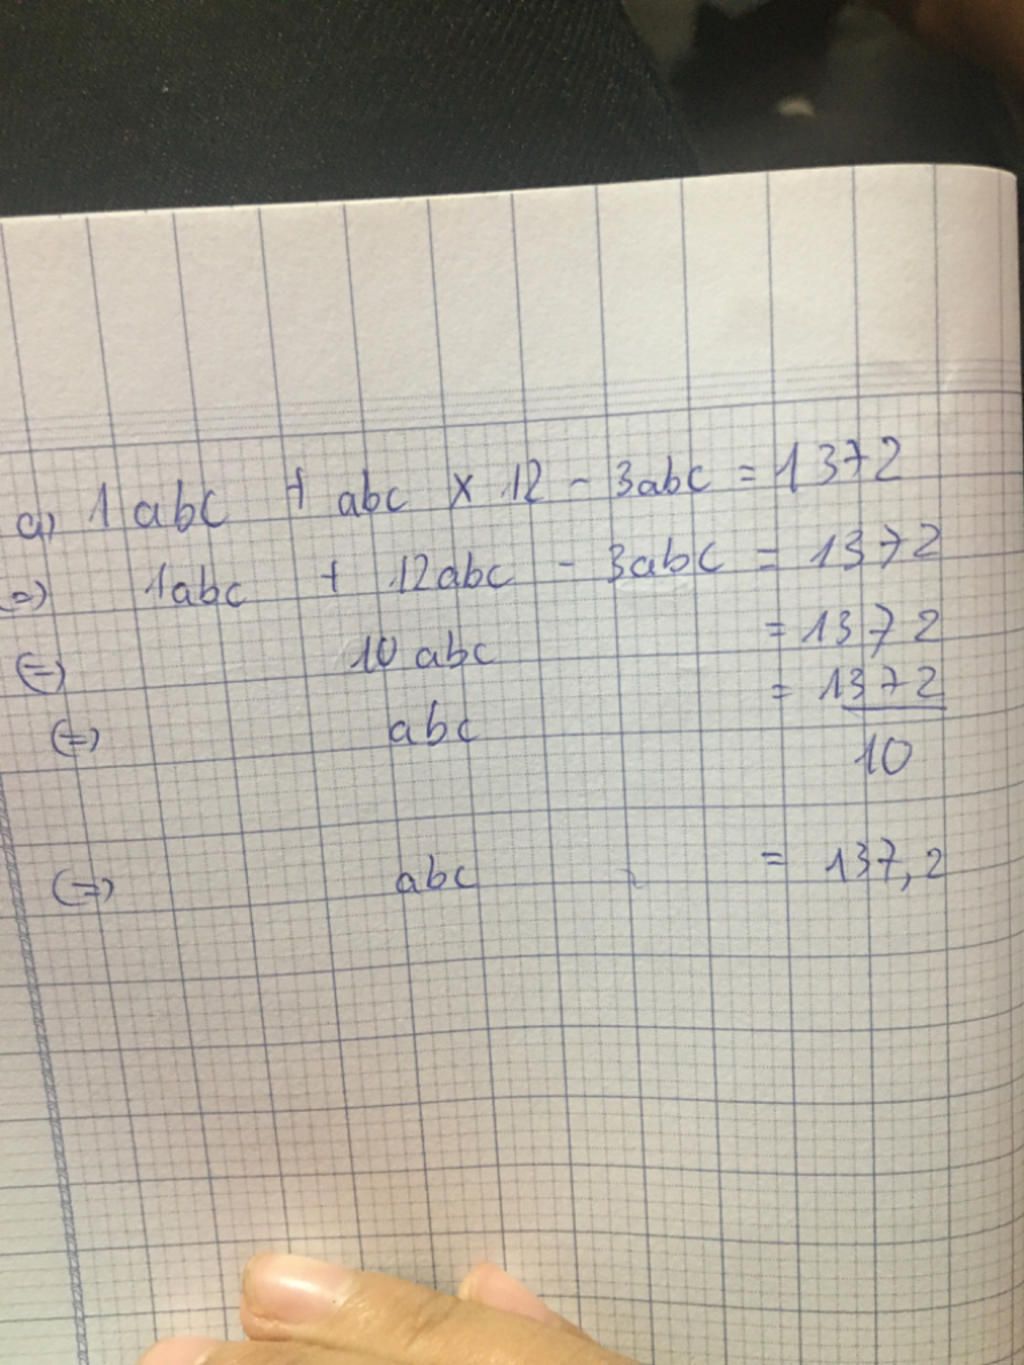 a) 1abc + abc x 12 - 3abc = 1372
(=) 1abc + 12abc - 3abc = 1372
(=) 10abc = 1372
(=) abc = 1372
10
(=) abc = 137,2